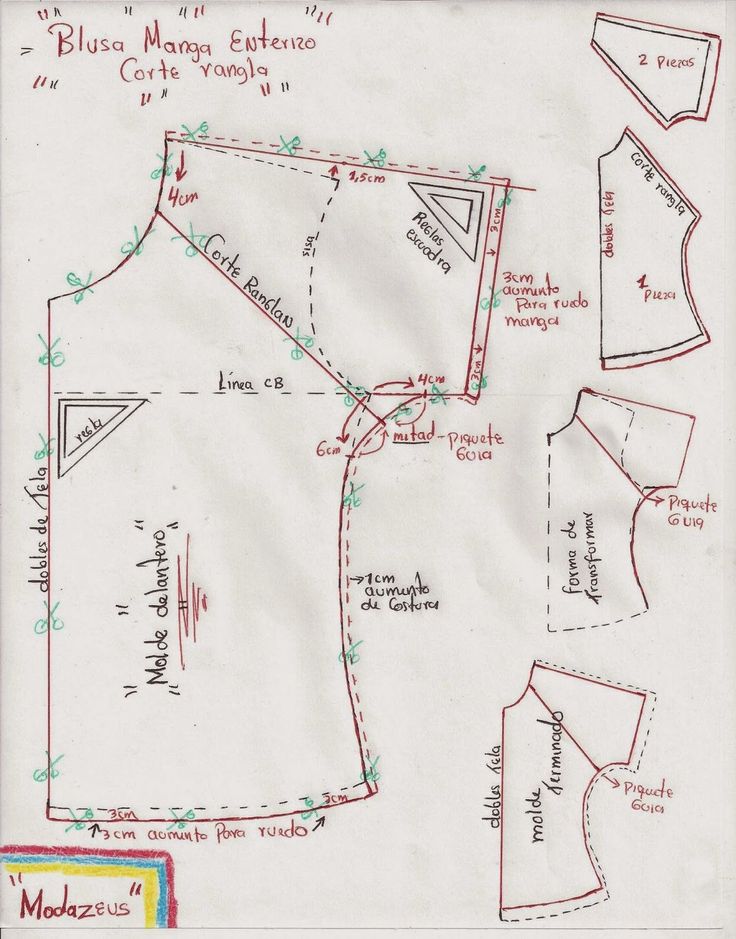 Blusa Manga Enterizo
Corte rangla
2 Piezas
4cm
1,5cm
Reglas
escuadra
3cm
sisa
Corte Ranglan
3cm
aumento
Para ruedo
manga
3cm
corte rangla
dobles Tela
1
Pieza
Línea CB
4cm
regla
6cm
mitad - Piquete
Guia
dobles de Tela
"Molde delantero"
1cm
aumento
de Costura
Piquete
Guia
forma de
Transformar
dobles Tela
molde
Terminado
Piquete
Guia
3cm
3cm
3cm aumento Para ruedo
"Modazeus"